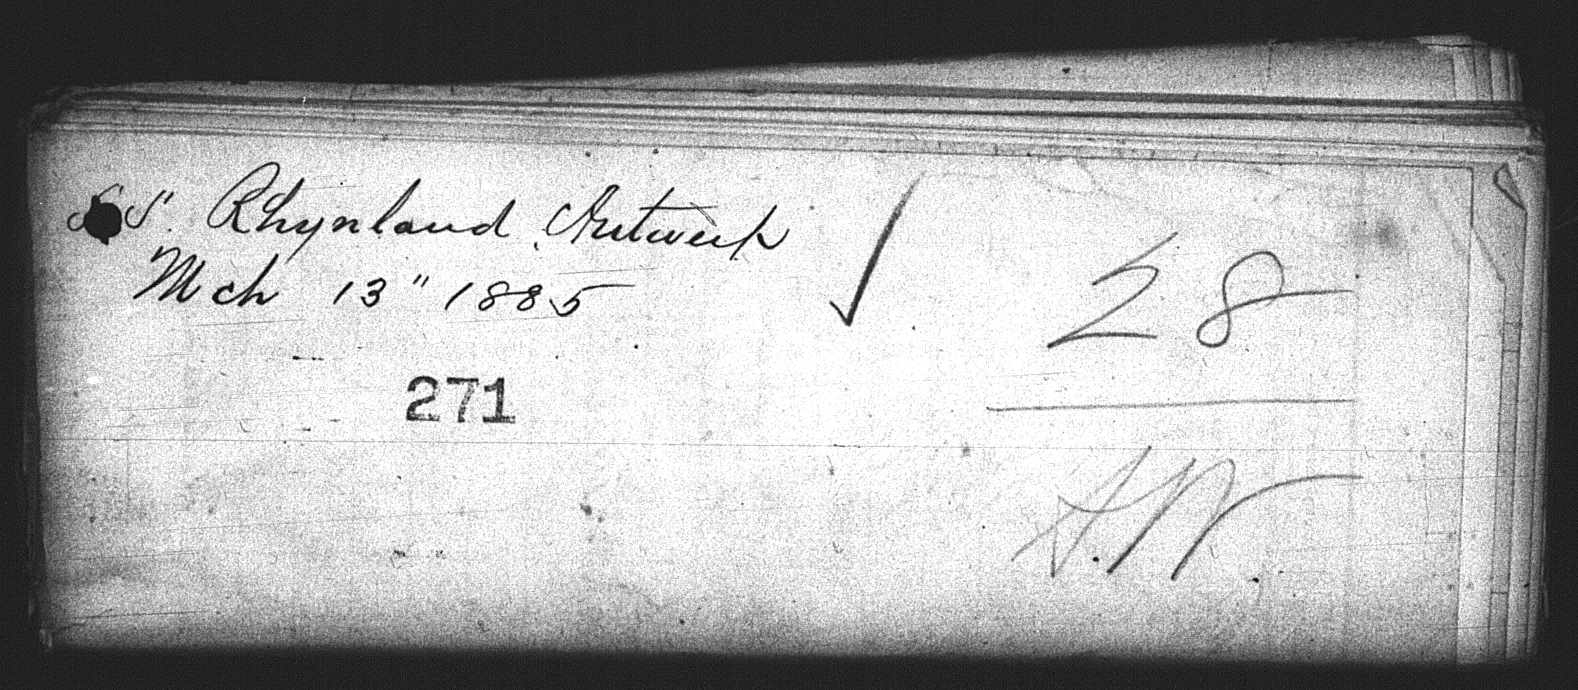 SS". Rhynland Antwerp
Mch 13" 1885
28
271